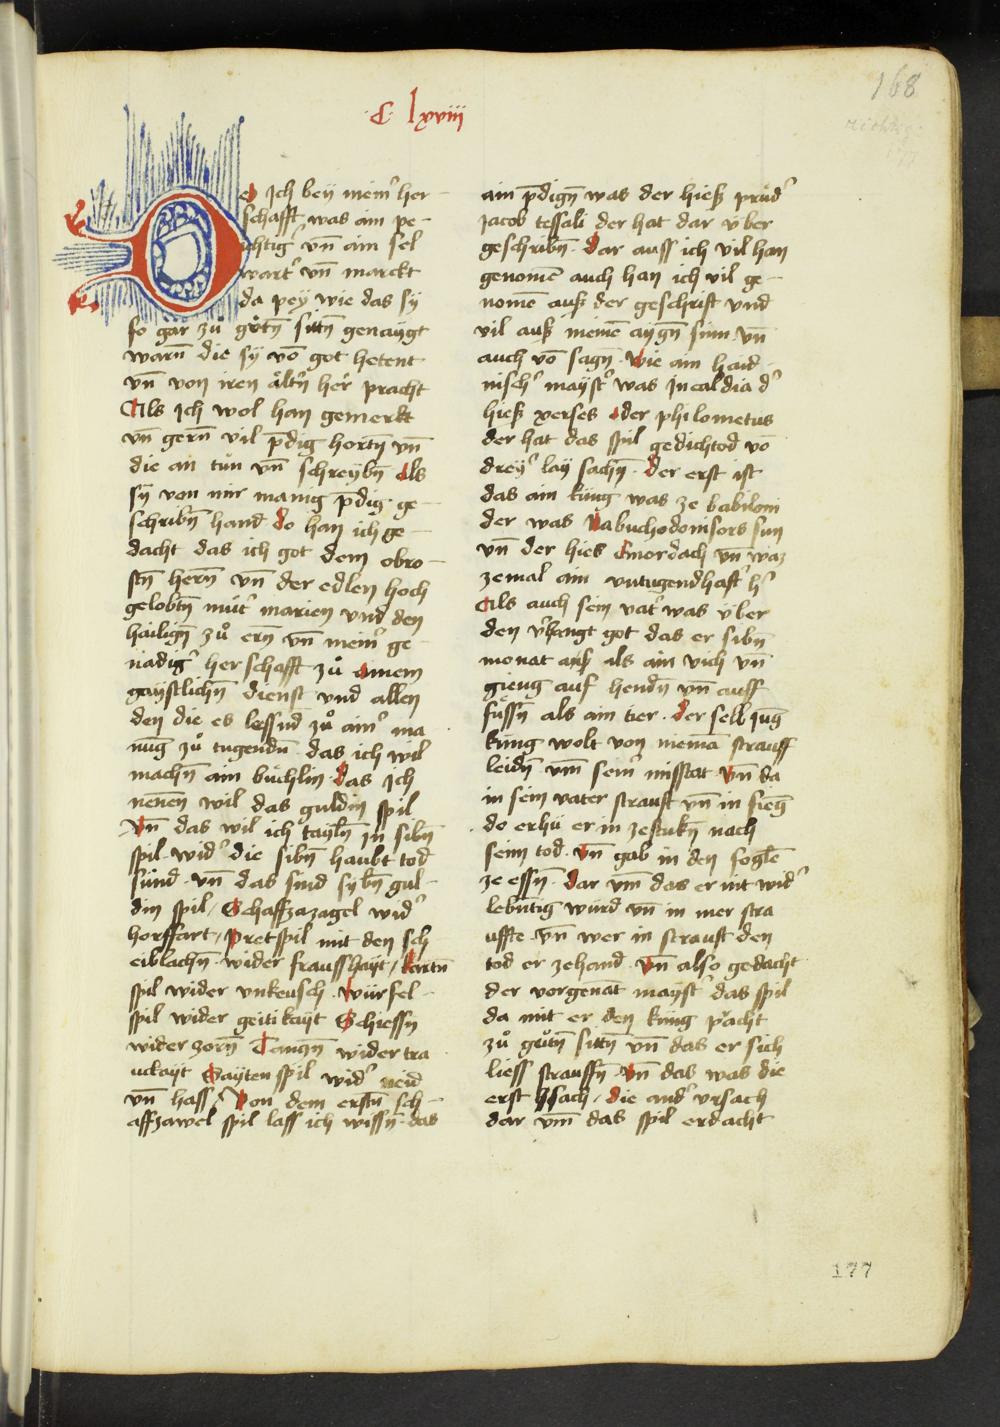 168
C lxviii
Do Ich beÿ meim̉ her-
schafft was ain pe-
ichtig̉ vn̄ ain sel
wart̉ vn̄ marckt
da peÿ wie das sÿ
so gar zů gůtn̄ sittn̄ genaÿgt
warn̄ die sÿ vō got hetent
vn̄ von iren åltn̄ her pracht
Als Jch wol han gemerkt
vn̄ gern̄ vil p̄dig hortn̄ vn̄
die an tůn vn̄ schreÿbn̄ Als
sÿ von mir manig p̄dig ge-
schribn̄ hand do han ich ge-
dacht das ich got dem obro-
stn̄ hern̄ vn̄ der edlen hoch
gelobtn̄ mut̉ marien vnd den
hailign̄ zů ern̄ vn̄ meim̉ ge
nådig̉ herschafft zů ainem
gaÿstlichn̄ dienst vnd allen
den die es lessnd zů aim̉ ma
nūg zů tugendn̄ das ich wil
machn̄ ain büchlin das Ich
nenēn wil das guldin spil
Vn̄ das wil ich taÿln̄ in sibn̄
spil wid̉ die sibn̄ haubt tod
sünd vn̄ das sind sÿbn̄ gul-
din spil / Schaffzazagel wid̉
horffart / Pretspil mit den sch
eiblachn̄ wider frausshaÿt / kartn̄
spil wider vnkeusch würfel-
spil wider geitikaÿt Schiessn̄
wider zorn̄ Tanzn̄ wider tra
uckaÿt Saÿten spil wid̉ neid
vn̄ hass / Von dem erstn̄ sch-
affzawel spil lass ich wissn̄ das
ain p̄dign̄ was der hieß průd̉
Jacob tessali der hat dar v̈ber
geschribn̄ dar auss ich vil han
genomē auch han ich vil ge-
nomē auß der geschrift vnd
vil auß meinē aÿgn̄ sinn vn̄
auch vō sagn̄ wie ain haid-
nisch̉ maÿst̉ was In caldia d̉
hieß xerses oder philometus
der hat das spil gedichtod vō
dreÿ̉ laÿ sachn̄ der erst ist
das ain küng was ze babiloni
der was Nabuchodonisors sun
vn̄ der hies Emordach vn̄ waz
zemal ain vntugendhaft̉ h̉
Als auch sein vat̉ was v̈ber
den v̉hangt got das er sibn̄
monat auß als ain vich vn̄
gieng auf hendn̄ vn̄ auff
fůssn̄ als ain tier der selb jūg
küng wolt von niemā strauff
leidn̄ vm̄ seim̉ misstat vn̄ da
in sein vater strauft vn̄ in sieng
do erhü er in zestukn̄ nach
seim tod vn̄ gab in den foglē
ze essn̄ dar vm̄ das er nit wid̉
lebntig würd vn̄ in mer stra
uffte vn̄ wer in strauft den
tod er zehand vn̄ also gedacht
der vorgenāt maÿst̉ das spil
da mit er den küng p̉acht
zů gůtn̄ sittn̄ vn̄ das er sich
liess strauffn̄ vn̄ das was die
erst sach / die and̉ vrsach
dar vm̄ das spil erdacht
177